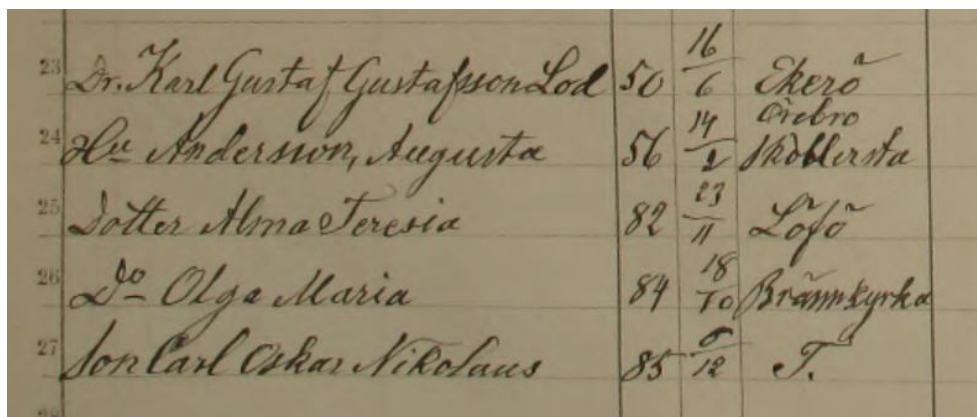 23 Dr. Karl Gustaf Gustafsson Lod 50 16/6 Ekerö
Örebro
24 Hu Andersson, Augusta 56 14/2 Sköllersta
25 Dotter Alma Teresia 82 23/11 Lofö
26 Do Olga Maria 84 18/10 Brännkyrka
27 Son Carl Oskar Nikolaus 85 6/12 T.
28